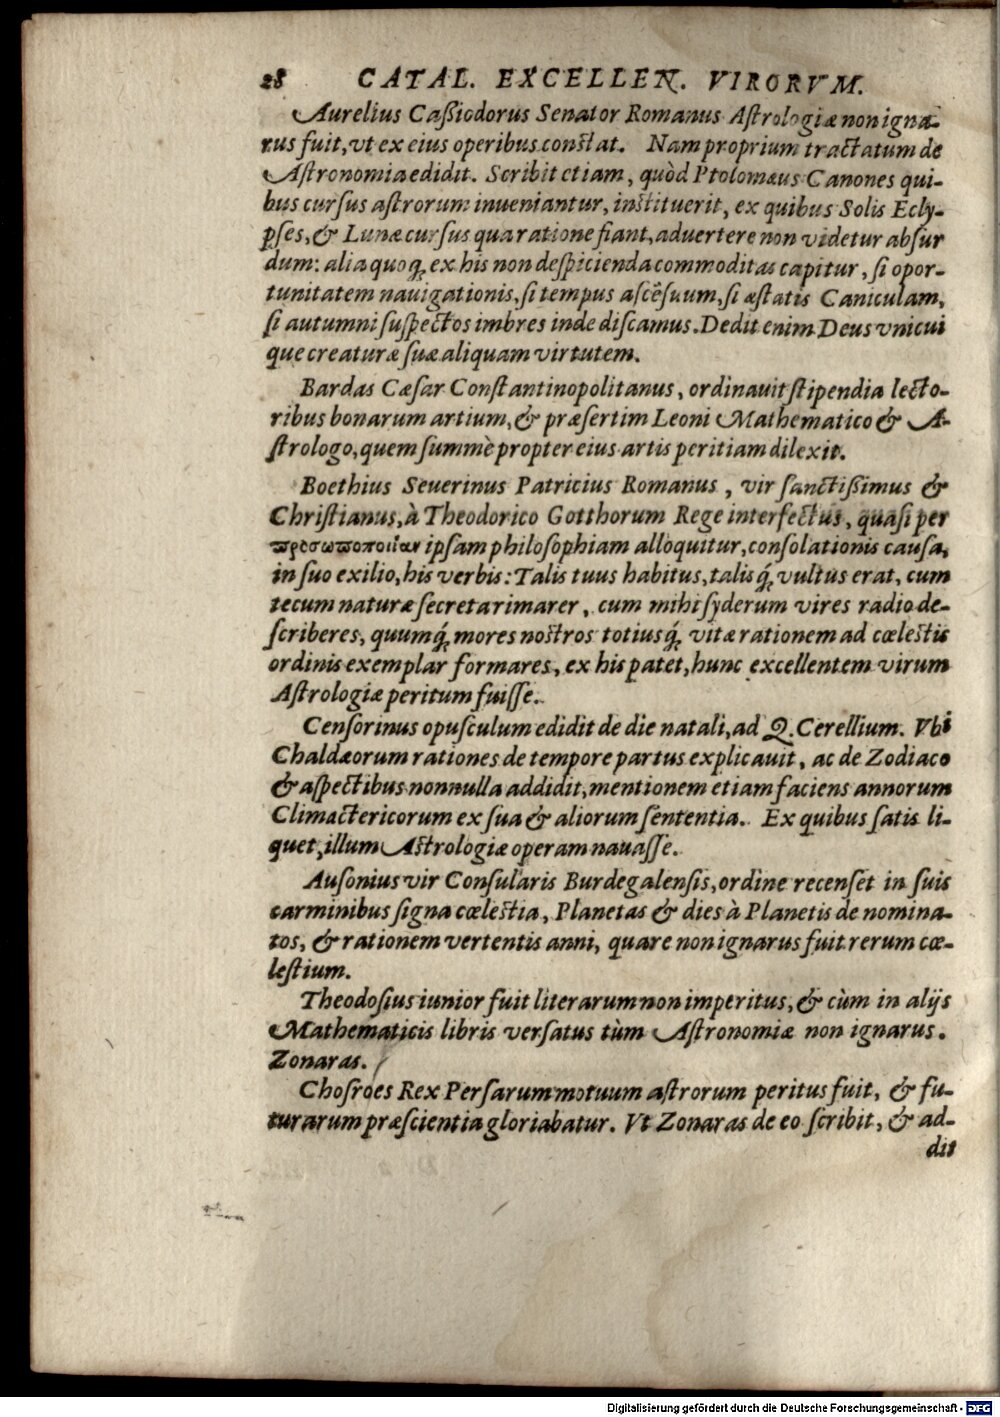 28 CATAL. EXCELLEN. VIRORVM.
Aurelius Caßiodorus Senator Romanus Aſtrologiæ non igna-
rus fuit, vt ex eius operibus conſtat. Nam proprium tractatum de
Aſtronomia edidit. Scribit etiam, quòd Ptolomæus Canones qui-
bus curſus aſtrorum inueniantur, inſtituerit, ex quibus Solis Ecly-
pſes, & Lunæ curſus qua ratione fiant, aduertere non videtur abſur
dum: alia quoq́; ex his non deſpicienda commoditas capitur, ſi opor-
tunitatem nauigationis, ſi tempus aſcẽſuum, ſi æſtatis Caniculam,
ſi autumni ſuſpectos imbres inde diſcamus. Dedit enim Deus vnicui
que creaturæ ſuæ aliquam virtutem.
Bardas Cæſar Conſtantinopolitanus, ordinauit ſtipendia lecto-
ribus bonarum artium, & præſertim Leoni Mathematico & A-
ſtrologo, quem ſummè propter eius artis peritiam dilexit.
Boethius Seuerinus Patricius Romanus, vir ſanctißimus &
Chriſtianus, à Theodorico Gotthorum Rege interfectus, quaſi per
ϖροσωϖοποιίαν ipſam philoſophiam alloquitur, conſolationis cauſa,
in ſuo exilio, his verbis: Talis tuus habitus, talisq́; vultus erat, cum
tecum naturæ ſecreta rimarer, cum mihi ſyderum vires radio de-
ſcriberes, quumq́; mores noſtros totiusq́; vitæ rationem ad cœleſtis
ordinis exemplar formares, ex his patet, hunc excellentem virum
Aſtrologiæ peritum fuiſſe.
Cenſorinus opuſculum edidit de die natali, ad Q. Cerellium. Vbi
Chaldæorum rationes de tempore partus explicauit, ac de Zodiaco
& aſpectibus nonnulla addidit, mentionem etiam faciens annorum
Climactericorum ex ſua & aliorum ſententia. Ex quibus ſatis li-
quet, illum Aſtrologiæ operam nauaſſe.
Auſonius vir Conſularis Burdegalenſis, ordine recenſet in ſuis
carminibus ſigna cœleſtia, Planetas & dies à Planetis de nomina-
tos, & rationem vertentis anni, quare non ignarus fuit rerum cœ-
leſtium.
Theodoſius iunior fuit literarum non imperitus, & cùm in alijs
Mathematicis libris verſatus tùm Aſtronomiæ non ignarus.
Zonaras.
Choſroes Rex Perſarum motuum aſtrorum peritus fuit, & fu-
turarum præſcientia gloriabatur. Vt Zonaras de eo ſcribit, & ad-
dit
Digitalisierung gefördert durch die Deutsche Forschungsgemeinschaft - DFG